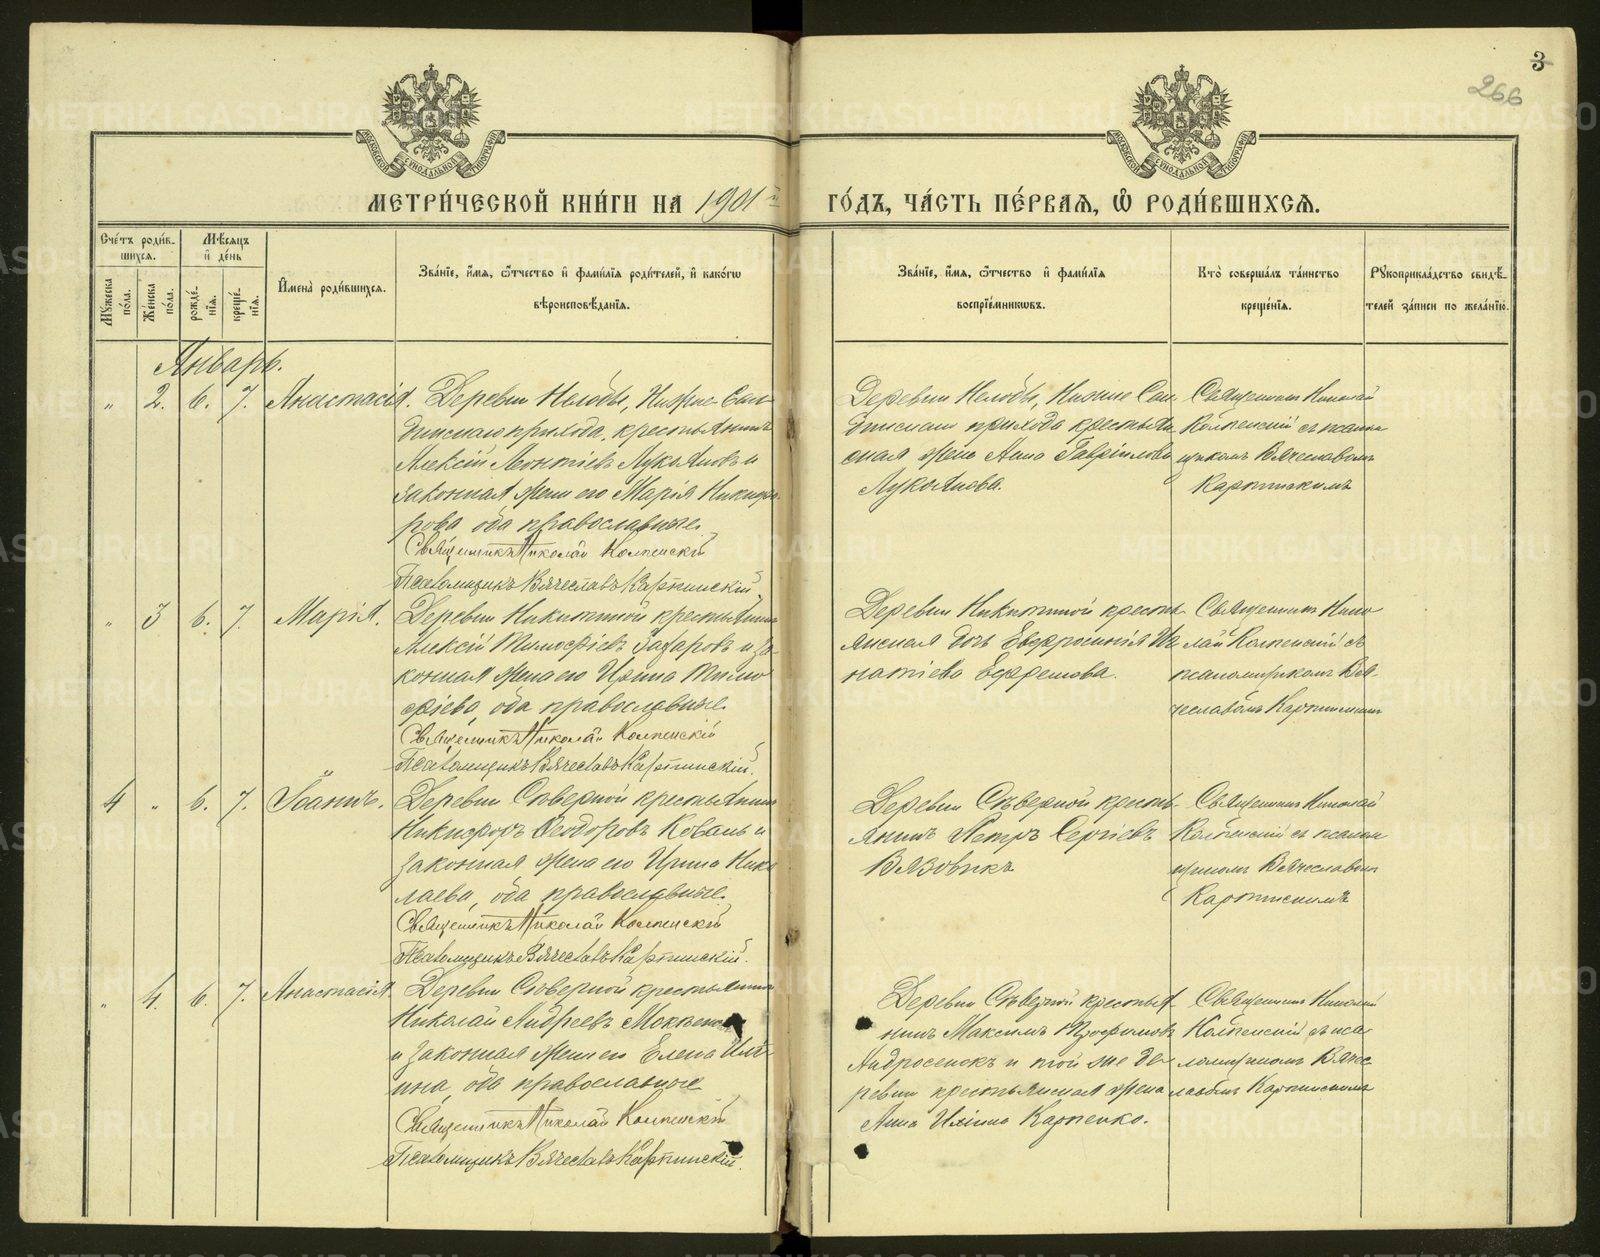 3
266
МЕТРИ́ЧЕСКОЙ КНИ́ГИ НА 1901й ГО́ДЪ, ЧА́СТЬ ПЕ́РВАЯ, Ѿ РОДИ́ВШИХСЯ.
Сче́тъ роди́в-
шихся.
Мѣ́сяцъ
и҆ де́нь
Мꙋжеска
по́ла.
Же́нска
по́ла.
рожде́-
нїѧ.
креще́-
нїѧ.
И҆мена̀ роди́вшихся.
Зва́нїе, и҆́мя, ѻ҆́тчество и҆ фами́лїя роди́телей, и҆ како́гѡ
вѣроисповѣ́данїѧ.
Зва́нїе, и҆́мя, ѻ҆́тчество и҆ фами́лїя
воспрїе́мниковъ.
Кто̀ соверша́лъ та́инство
креще́нїѧ.
Рꙋкоприкла́дство свидѣ́-
телей за́писи по жела́нїю.
Январь.
" 2. 6. 7. Анастасія.
Деревни Нелобы, Нижне-Сал-
динскаго прихода, крестьянинъ
Алексій Леонтіевъ Лукьяновъ и
законная жена его Марія Никифо-
рова оба православные.
Священникъ Николай Колпенскій
Псаломщикъ Вячеславъ Карпинскій
Деревни Нелобы, Нижне Сал-
динскаго прихода крестьян-
ская жена Анна Гавріилова
Лукоянова.
Священникъ Николай
Колпенскій съ псалом-
щикомъ Вячеславомъ
Карпинскимъ
" 3 6. 7. Марія.
Деревни Никитиной крестьянинъ
Алексій Тимофіевъ Захаровъ и за-
конная жена его Ирина Тимо-
фіева, оба православные.
Священникъ Николай Колпенскій
Псаломщикъ Вячеславъ Карпинскій.
Деревни Никитиной кресть-
янская дочь Евфросинія Иг-
натіева Ефремова.
Священникъ Нико-
лай Колпенскій съ
псаломщикомъ Вя-
чеславомъ Карпинскимъ
4 " 6. 7. Іоаннъ.
Деревни Сѣверной крестьянинъ
Никифоръ Ѳеодоровъ Коваль и
законная жена его Ирина Нико-
лаева, оба православные.
Священникъ Николай Колпенскій
Псаломщикъ Вячеславъ Карпинскій.
Деревни Сѣверной кресть-
янинъ Петръ Сергіевъ
Вязовикъ
Священникъ Николай
Колпенскій съ псалом-
щикомъ Вячеславомъ
Карпинскимъ
" 4. 6. 7. Анастасія
Деревни Сѣверной крестьянинъ
Николай Андреевъ
и законная жена его Елена Ильи-
ина, оба православные
Священникъ Николай Колпенскій
Псаломщикъ Вячеславъ Карпинскій.
Деревни Сѣверной крестья-
нинъ Максимъ
Андросенокъ и той же де-
ревни крестьянская жена
Анна Иліина Карпенко.
Священникъ Николай
Колпенскій съ пса-
ломщикомъ Вячес-
лавомъ Карпинскимъ
METRIKI.GASO-URAL.RU